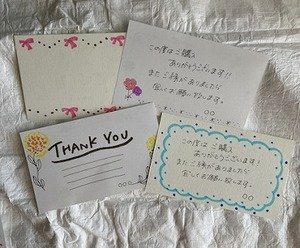 この度はご購入
ありがとうございます!!
またご縁がありましたら
宜しくお願い致します。
○○
THANK YOU
○○
この度はご購入
ありがとうございます!
またご縁がありましたら
宜しくお願い致します。
○○